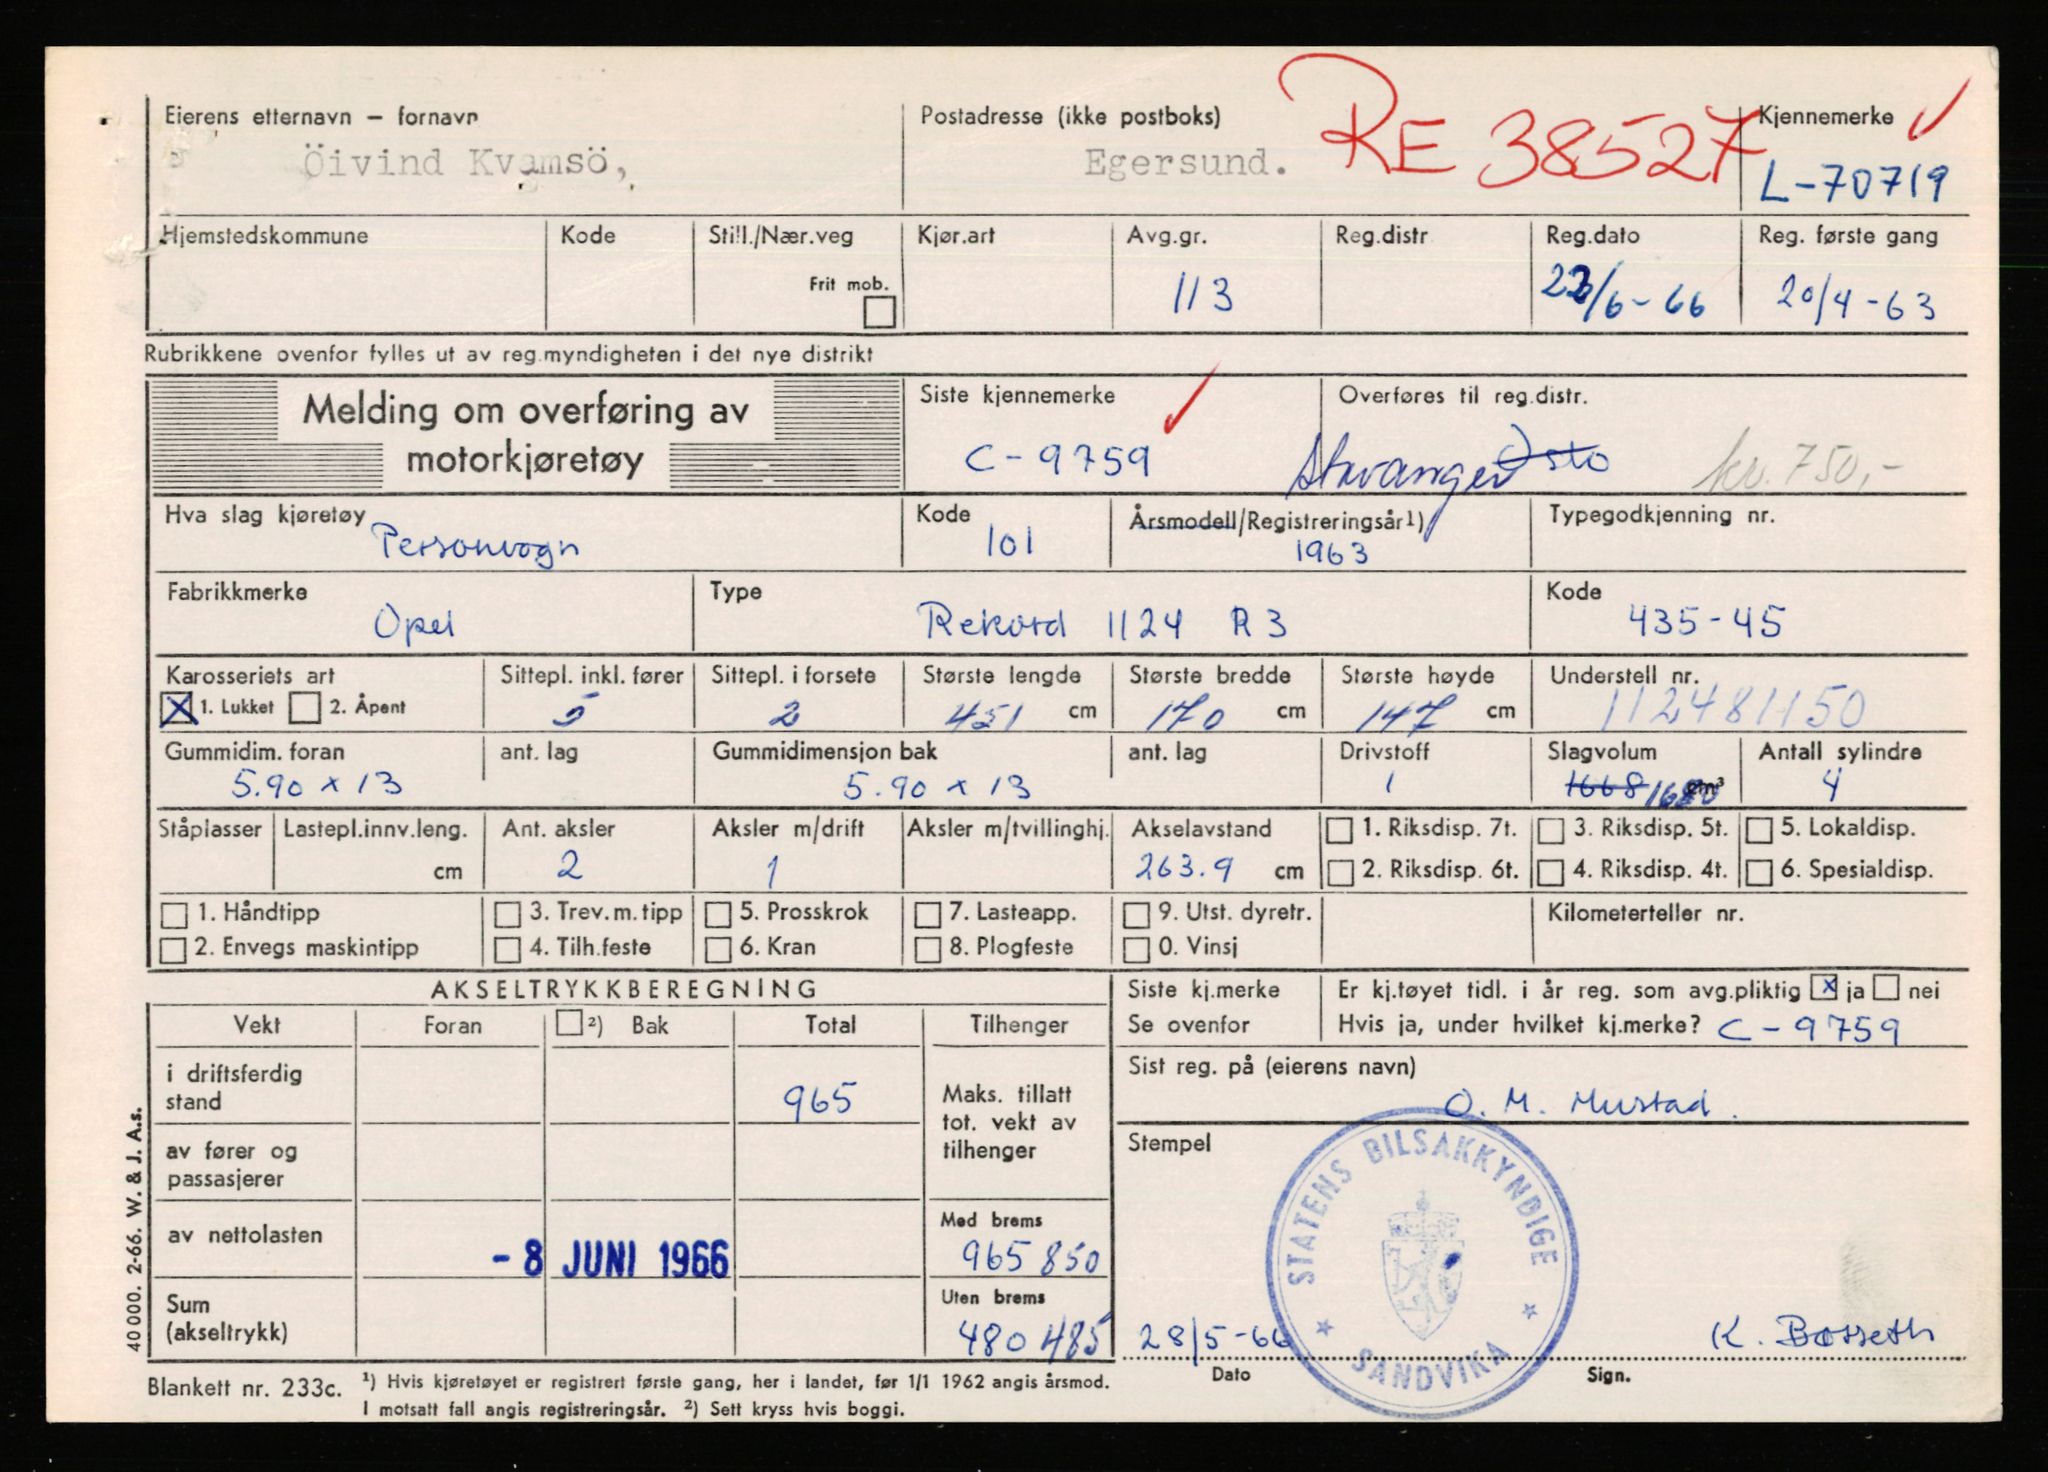 Eierens etternavn – fornavn
Öivind Kvamsö,
Postadresse (ikke postboks)
Egersund.
RE 38527
Kjennemerke
L-70719
Hjemstedskommune
Kode
Still./Nær.veg
Frit mob.
Kjør.art
Avg.gr.
113
Reg.distr
Reg.dato
/6-66
Reg. første gang
20/4-63
Rubrikkene ovenfor fylles ut av reg.myndigheten i det nye distrikt
Melding om overføring av
motorkjøretøy
Siste kjennemerke
C-9759
Overføres til reg.distr.
Stavanger Oslo
kr. 750,-
Hva slag kjøretøy
Personvogn
Kode
101
Årsmodell/Registreringsår1)
1963
Typegodkjenning nr.
Fabrikkmerke
Opel
Type
Rekord 1124 R3
Kode
435-45
Karosseriets art
1. Lukket 2. Åpent
Sittepl. inkl. fører
5
Sittepl. i forsete
2
Største lengde
451 cm
Største bredde
170 cm
Største høyde
147 cm
Understell nr.
112481150
Gummidim. foran
5.90 x 13
ant. lag
Gummidimensjon bak
5.90 x 13
ant. lag
Drivstoff
1
Slagvolum
1668 1680 cm³
Antall sylindre
4
Ståplasser
Lastepl.innv.leng.
cm
Ant. aksler
2
Aksler m/drift
1
Aksler m/tvillinghj.
Akselavstand
263.9 cm
1. Riksdisp. 7t.
2. Riksdisp. 6t.
3. Riksdisp. 5t.
4. Riksdisp. 4t.
5. Lokaldisp.
6. Spesialdisp.
1. Håndtipp
2. Envegs maskintipp
3. Trev.m.tipp
4. Tilh.feste
5. Prosskrok
6. Kran
7. Lasteapp.
8. Plogfeste
9. Utst. dyretr.
0. Vinsj
Kilometerteller nr.
AKSELTRYKKBEREGNING
Vekt
Foran
2) Bak
Total
Tilhenger
i driftsferdig
stand
965
Maks. tillatt
tot. vekt av
tilhenger
av fører og
passasjerer
av nettolasten
- 8 JUNI 1966
Med brems
965 850
Sum
(akseltrykk)
Uten brems
480 485
Siste kj.merke
Se ovenfor
Er kj.tøyet tidl. i år reg. som avg.pliktig x ja nei
Hvis ja, under hvilket kj.merke? C-9759
Sist reg. på (eierens navn)
O. M. Mustad.
Stempel
STATENS BILSAKKYNDIGE
SANDVIKA
28/5-66
Dato
K. Bosseth
Sign.
40 000. 2-66. W. & J. A.s.
Blankett nr. 233c.
1) Hvis kjøretøyet er registrert første gang, her i landet, før 1/1 1962 angis årsmod.
I motsatt fall angis registreringsår. 2) Sett kryss hvis boggi.